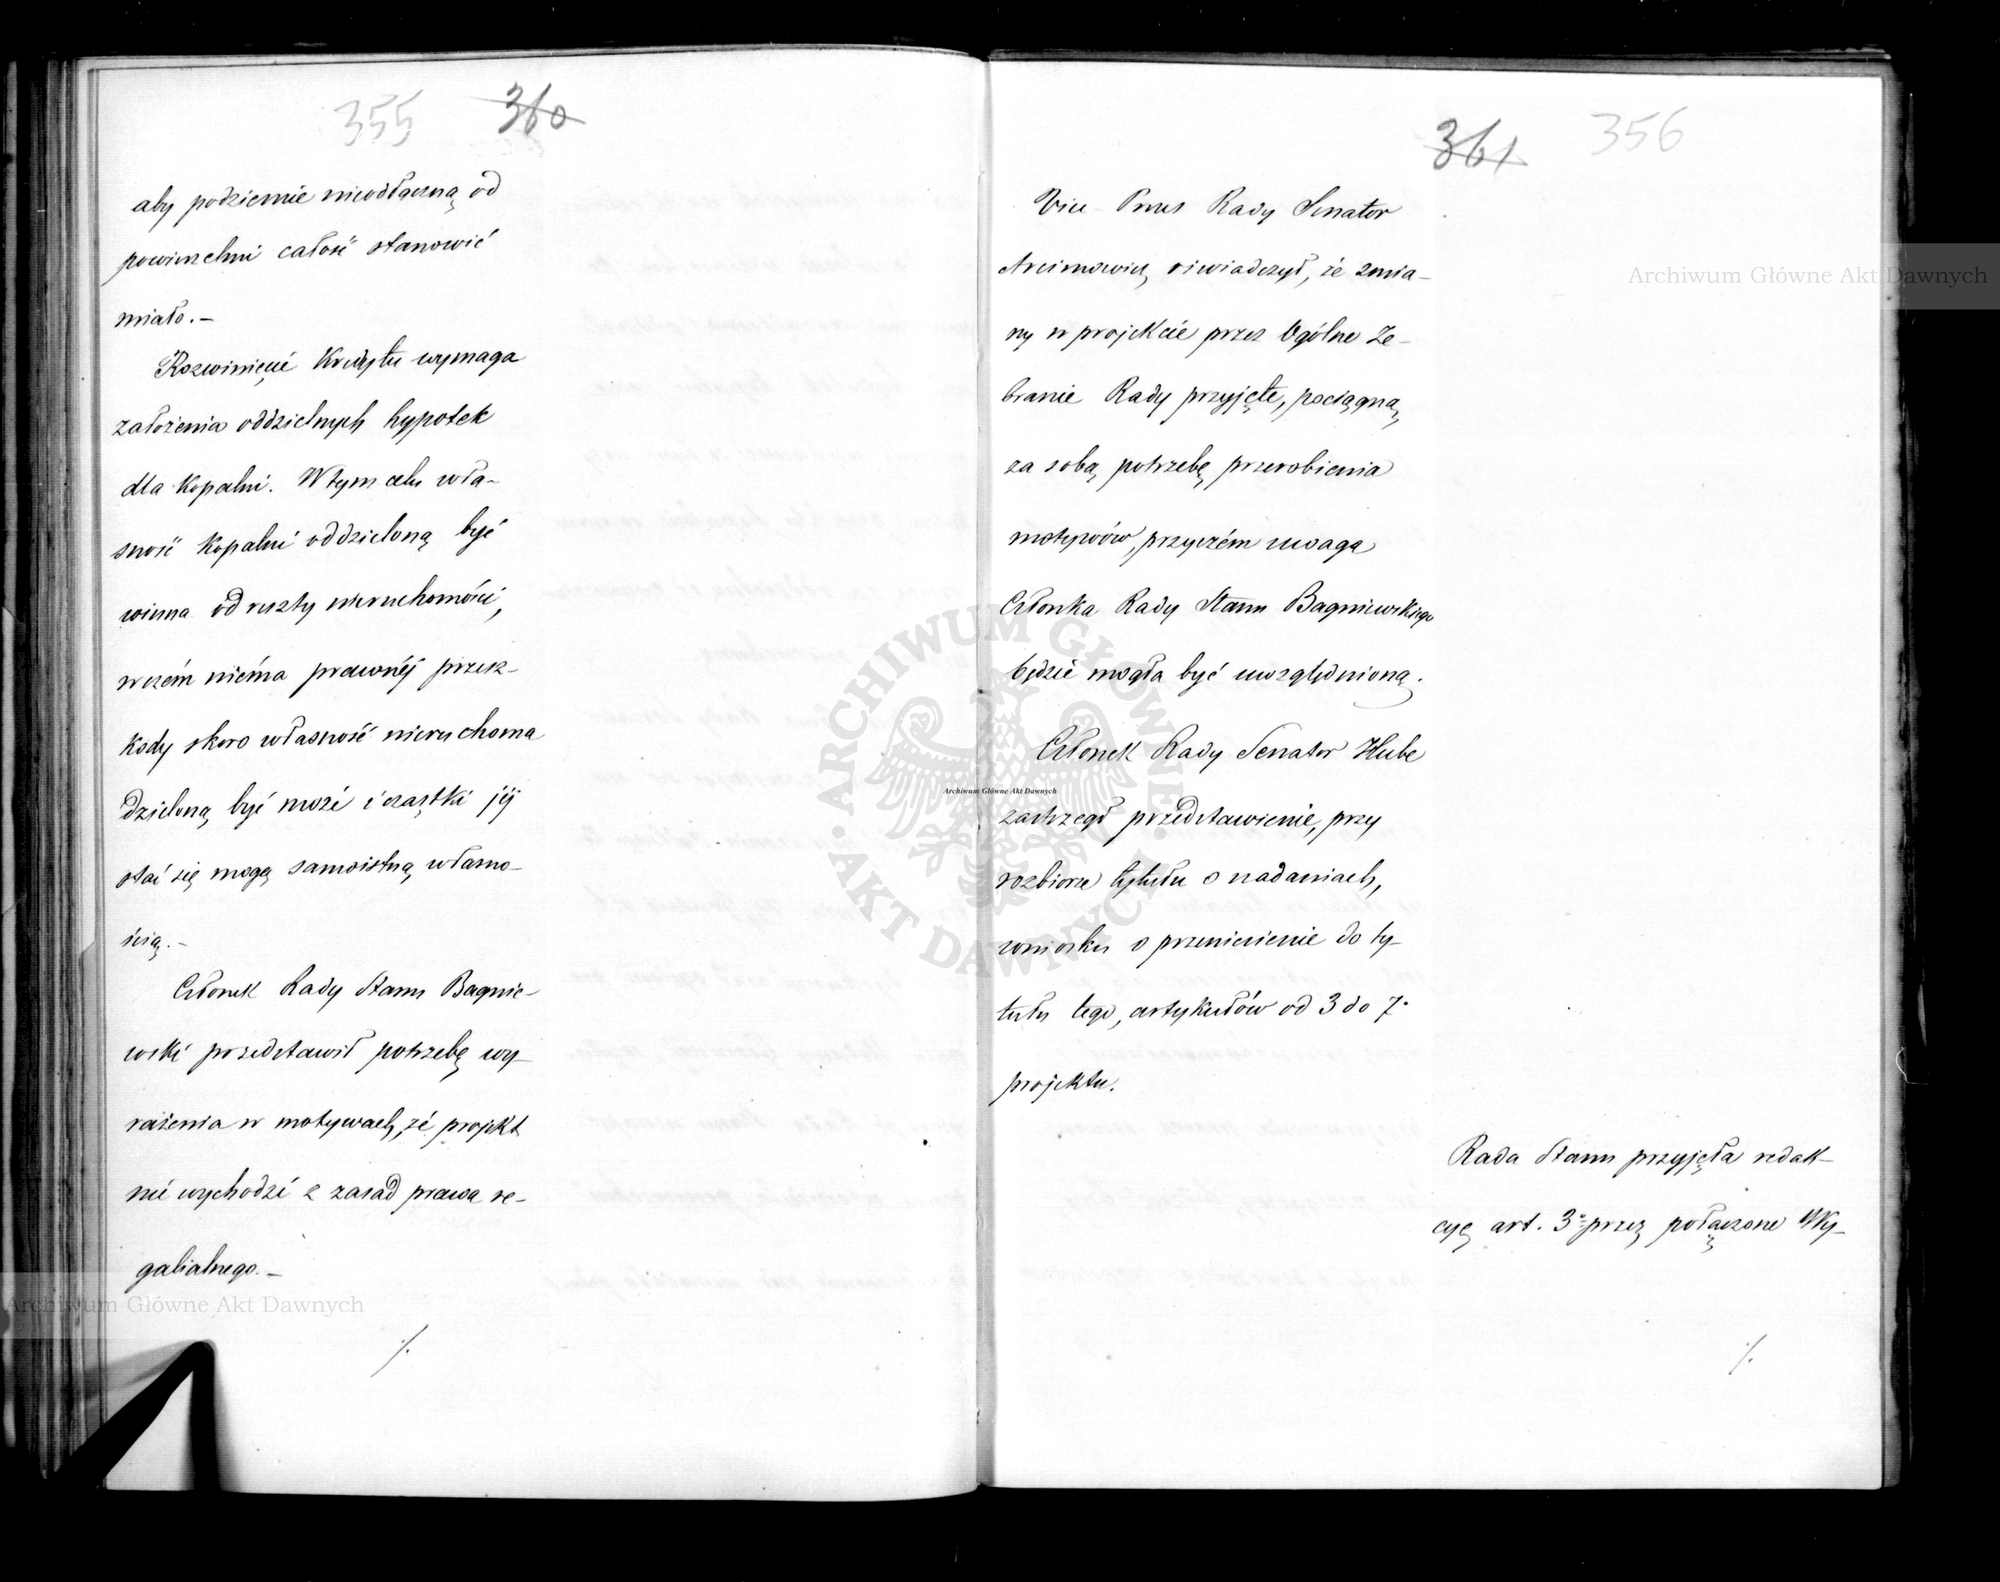 355 360
aby podziemie nieodłączną od
powierzchni całość stanowić
miało.—
Rozwinięcie Kredytu wymaga
założenia oddzielnych hypotek
dla Kopalni. W tym celu wła-
sność Kopalni oddzieloną być
winna od reszty nieruchomości,
w czém niéma prawnéj przesz-
kody skoro własność nieruchoma
dzieloną być może i cząstki jéj
stać się mogą samoistną własno-
ścią.—
Członek Rady Stanu Bagnie-
wski przedstawił potrzebę wy-
rażenia w motywach, że projekt
nie wychodzi z zasad prawa re-
galialnego.—
/.
361 356
Vice-Prezes Rady Senator
Arcimowicz, oświadczył, że zmia-
ny w projekcie przez Ogólne Ze-
branie Rady przyjęte, pociągną
za sobą potrzebę przerobienia
motywów, przyczém uwaga
Członka Rady Stanu Bagniewskiego
będzie mogła być uwzględnioną.
Członek Rady Senator Hube
zastrzegł przedstawienie, przy
rozbiorze tytułu o nadaniach,
wniosku o przeniesienie do ty-
tułu tego, artykułów od 3 do 7.
projektu.
Rada Stanu przyjęła redak-
cyę art. 3º przez połączone Wy-
/.
Archiwum Główne Akt Dawnych
Archiwum Główne Akt Dawnych
Archiwum Główne Akt Dawnych
ARCHIWUM GŁÓWNE · AKT DAWNYCH ·